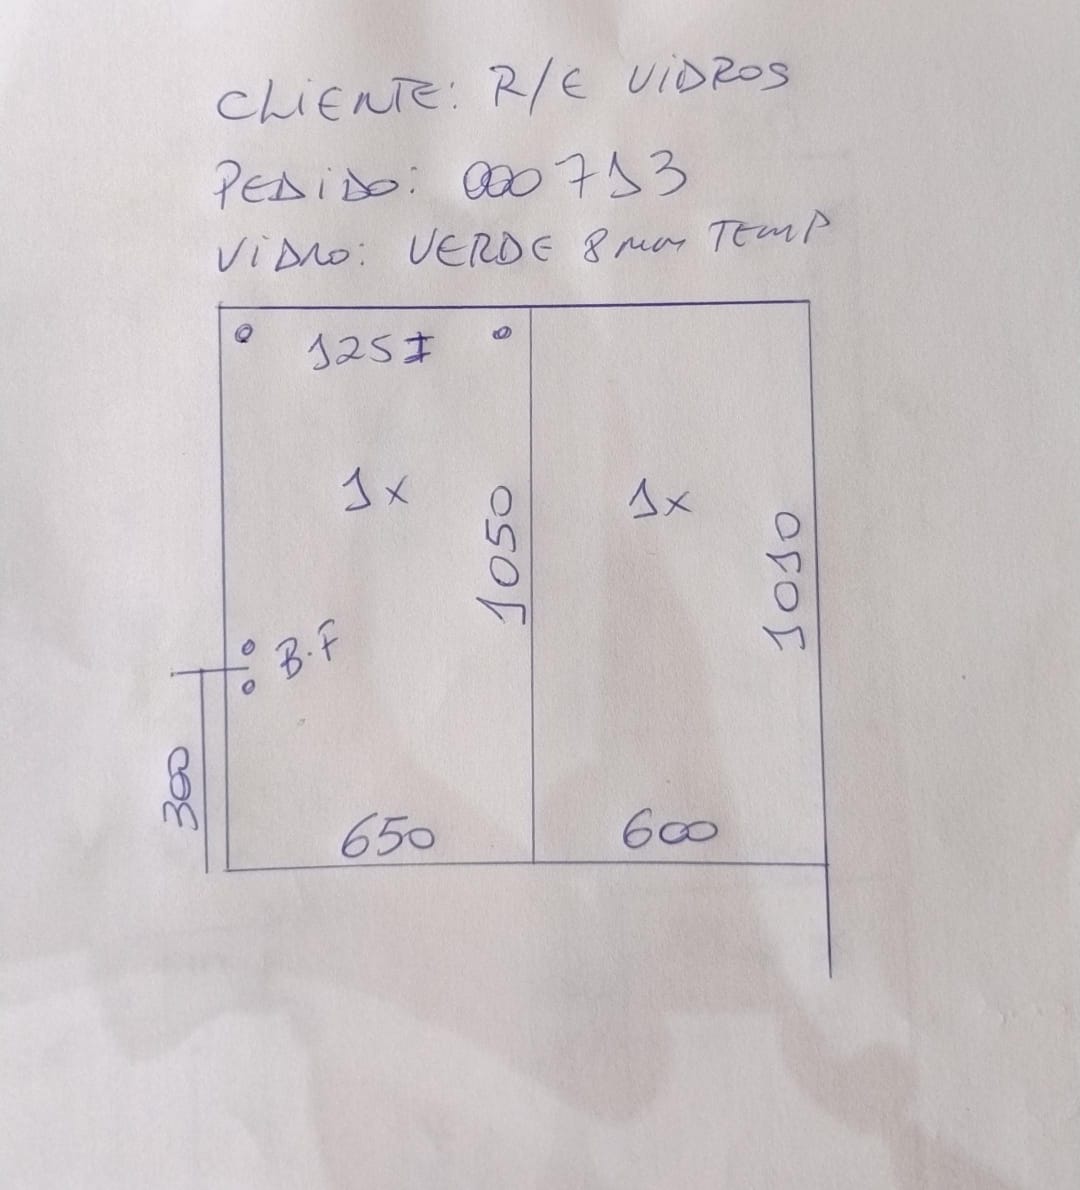 CLIENTE: R/E VIDROS
PEDIDO: 000713
VIDRO: VERDE 8mm TEMP
125I
1x
1x
1050
1010
B.F
300
650
600